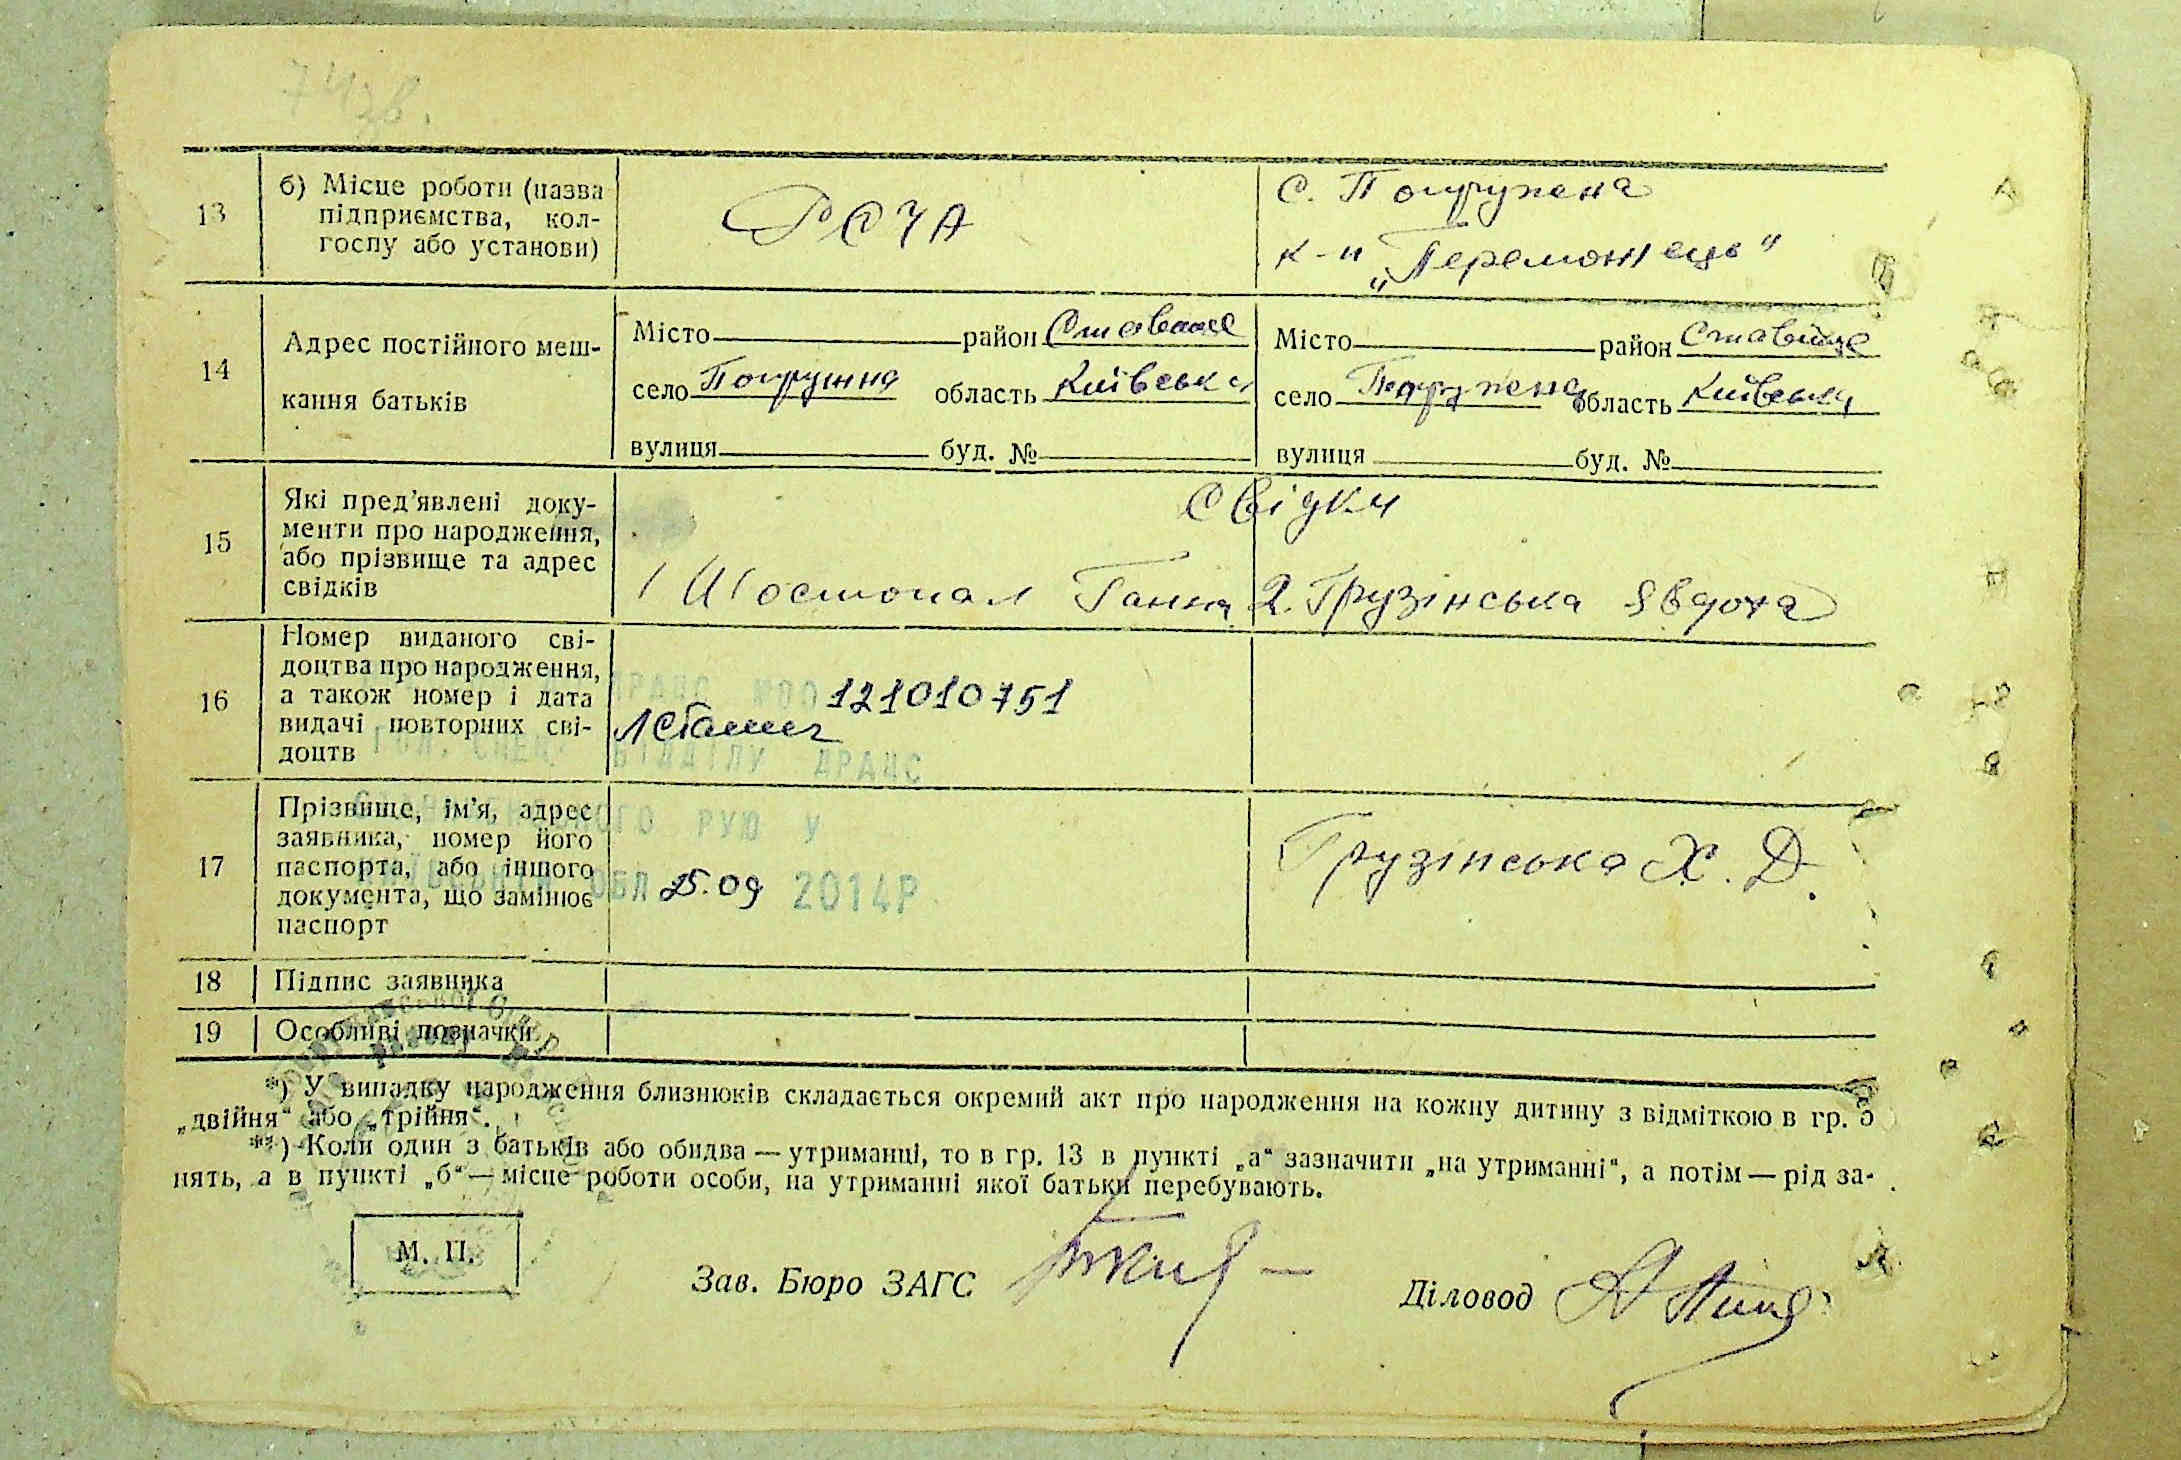 74 зв.
13
б) Місце роботи (назва
підприємства, кол-
госпу або установи)
РСЧА
с. Погружена
к-п „Переможець"
14
Адрес постійного меш-
кання батьків
Місто район Ставище
село область Київська
вулиця буд. №
Місто район Ставище
село Погружена область Київська
вулиця буд. №
15
Які пред'явлені доку-
менти про народження,
або прізвище та адрес
свідків
Свідки
1 Шостопал Ганна 2. Грузінська Явдоха
16
Номер виданого сві-
доцтва про народження,
а також номер і дата
видачі повторних сві-
доцтв
ДРАЦС 121010751
ГОЛ. СПЕЦ. ВІДДІЛУ ДРАЦС
17
Прізвище, ім'я, адрес
заявника, номер його
паспорта, або іншого
документа, що замінює
паспорт
РУЮ У
ОБЛ 25.09 2014Р.
Грузінська Х. Д.
18
Підпис заявника
19
Особливі позначки
*) У випадку народження близнюків складається окремий акт про народження на кожну дитину з відміткою в гр. 5
„двійня“ або „трійня“.
**) Коли один з батьків або обидва — утриманці, то в гр. 13 в пункті „а“ зазначити „на утриманні“, а потім — рід за-
нять, а в пункті „б“ — місце роботи особи, на утриманні якої батьки перебувають.
М. П.
Зав. Бюро ЗАГС
Діловод